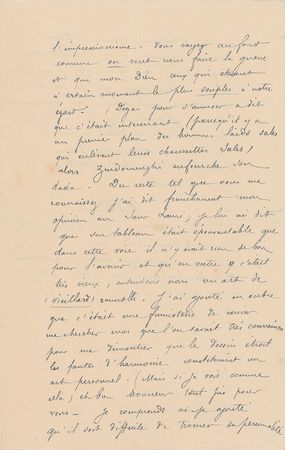 l'impressionisme. Vous voyez au fond
comme on veut nous faire la guerre
et qui mon Dieu ceux qui étaient
à certain moment le plus souples à notre
égard. Degas pour s'amuser a dit
que c'était intéressant (parcequ'il y a
au premier plan des hommes laids sales
qui enlèvent leurs chaussettes sales)
alors Zuidomenghi enfourche son
dada. Du reste tel que vous me
connaissez j'ai dit franchement mon
opinion au sieur; je lui ai dit
que son tableau était épouvantable que
dans cette voie il n'y avait rien de bon
pour l'avenir et qu'en outre c'était
très vieux, entendons nous un art de
(vieillard) ramolli. J'ai ajouté en outre
que c'était une fumisterie de venir
me chercher mais que l'on savait très convaincu
pour me démontrer que le dessin
les fautes d'harmonie constituent un
art personnel. (Mais si je vois comme
cela) eh bien Monsieur tant pis pour
vous. Je comprends ai-je ajouté
qu'il soit difficile de trouver sa personnalité